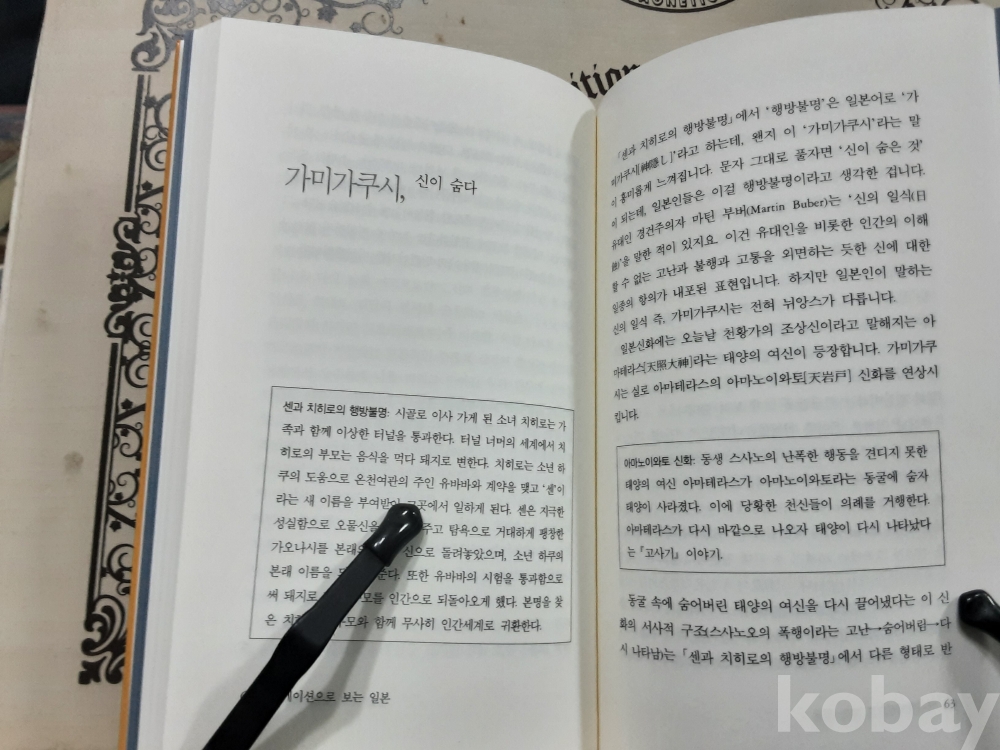 NETIC
ition
가미가쿠시, 신이 숨다
센과 치히로의 행방불명: 시골로 이사 가게 된 소녀 치히로는 가
족과 함께 이상한 터널을 통과한다. 터널 너머의 세계에서 치
히로의 부모는 음식을 먹다 돼지로 변한다. 치히로는 소년 하
쿠의 도움으로 온천여관의 주인 유바바와 계약을 맺고 '센'이
라는 새 이름을 부여받아 그곳에서 일하게 된다. 센은 지극한
성실함으로 오물신을 주고 탐욕으로 거대하게 팽창한
가오나시를 본래 신으로 돌려놓았으며, 소년 하쿠의
본래 이름을 준다. 또한 유바바의 시험을 통과함으로
써 돼지로 부모를 인간으로 되돌아오게 했다. 본명을 찾
은 치히 부모와 함께 무사히 인간세계로 귀환한다.
메이션으로 보는 일본
「센과 치히로의 행방불명」에서 '행방불명'은 일본어로 '가
미가쿠시[神隱し]'라고 하는데, 왠지 이 '가미가쿠시'라는 말
이 흥미롭게 느껴집니다. 문자 그대로 풀자면 '신이 숨은 것'
이 되는데, 일본인들은 이걸 행방불명이라고 생각한 겁니다.
유대인 경건주의자 마틴 부버(Martin Buber)는 '신의 일식(日
蝕)'을 말한 적이 있지요. 이건 유대인을 비롯한 인간의 이해
할 수 없는 고난과 불행과 고통을 외면하는 듯한 신에 대한
일종의 항의가 내포된 표현입니다. 하지만 일본인이 말하는
신의 일식 즉, 가미가쿠시는 전혀 뉘앙스가 다릅니다.
일본신화에는 오늘날 천황가의 조상신이라고 말해지는 아
마테라스[天照大神]라는 태양의 여신이 등장합니다. 가미가쿠
시는 실로 아마테라스의 아마노이와토[天岩戸] 신화를 연상시
킵니다.
아마노이와토 신화: 동생 스사노의 난폭한 행동을 견디지 못한
태양의 여신 아마테라스가 아마노이와토라는 동굴에 숨자
태양이 사라졌다. 이에 당황한 천신들이 의례를 거행한다.
아마테라스가 다시 바깥으로 나오자 태양이 다시 나타났다
는 『고사기』 이야기.
동굴 속에 숨어버린 태양의 여신을 다시 끌어냈다는 이 신
화의 서사적 구조(스사노오의 폭행이라는 고난→숨어버림→다
시 나타남)는 「센과 치히로의 행방불명」에서 다른 형태로 반
65
kobay